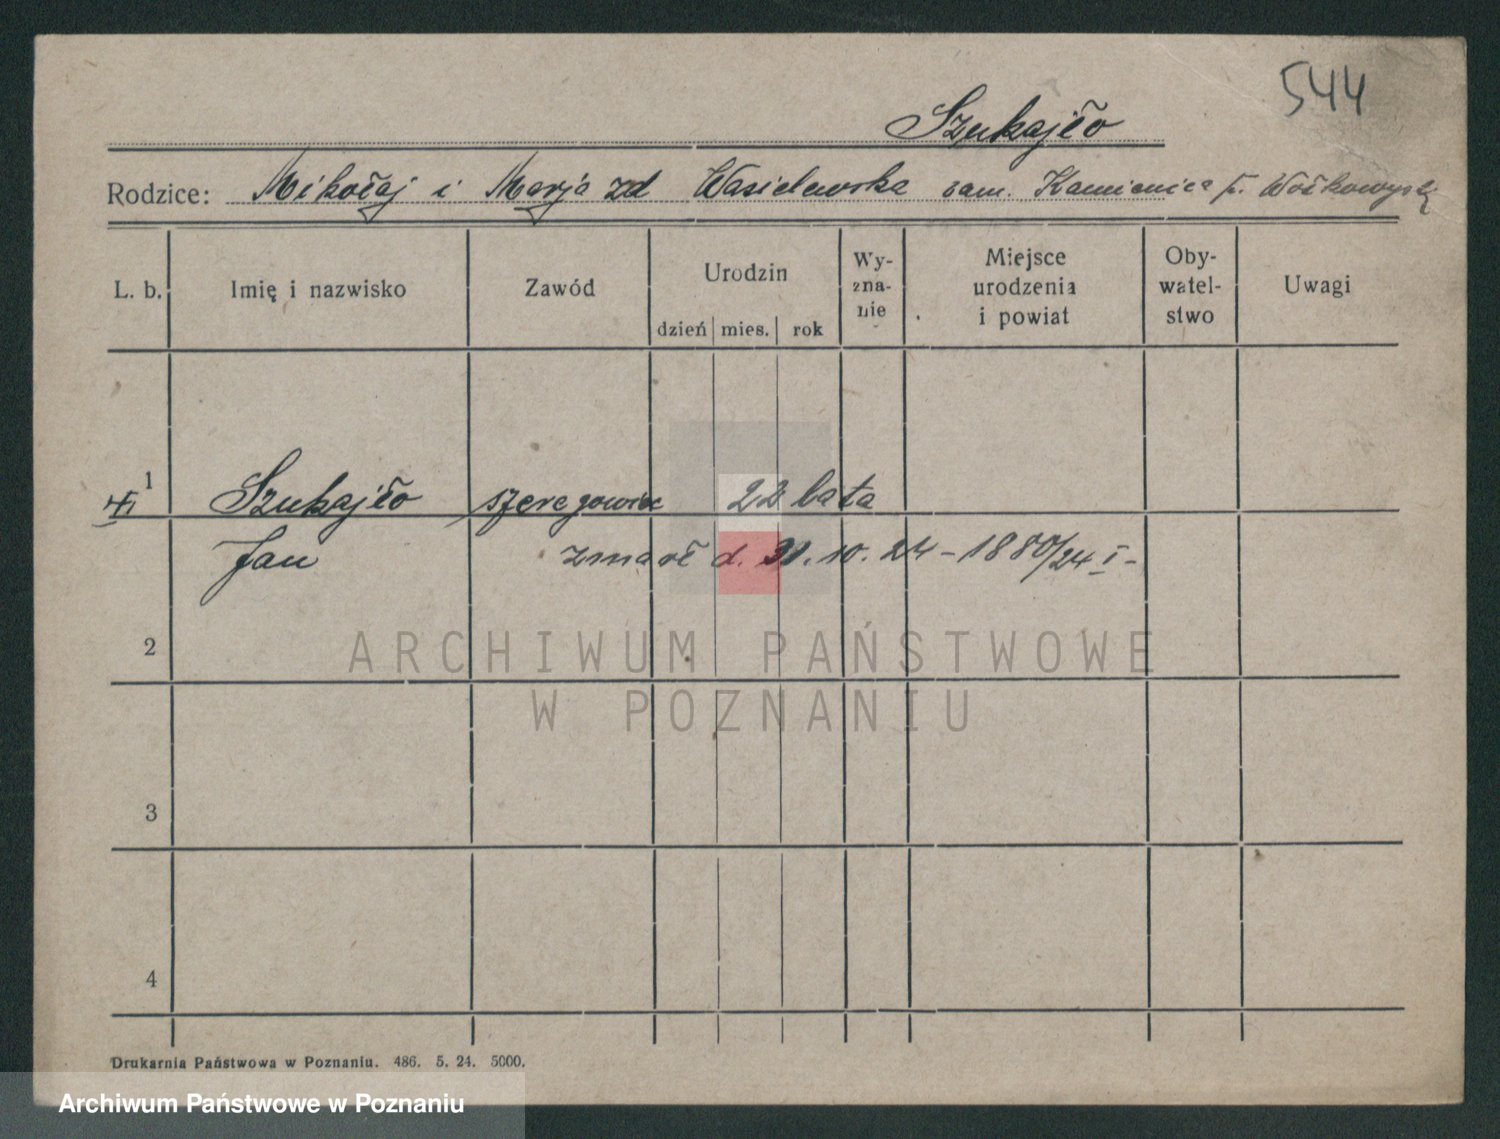 544
Szukajło
Rodzice: Mikołaj i Marja zd Wasielewska zam. Kamienica p. Wołkowyski
L. b. Imię i nazwisko Zawód Urodzin dzień mies. rok Wy-zna-nie Miejsce urodzenia i powiat Oby-watel-stwo Uwagi
1 Szukajło szeregowiec 22 lata
Jan zmarł d. 31. 10. 24 - 1880/24 I -
2
ARCHIWUM PAŃSTWOWE
W POZNANIU
3
4
Drukarnia Państwowa w Poznaniu. 486. 5. 24. 5000.
Archiwum Państwowe w Poznaniu